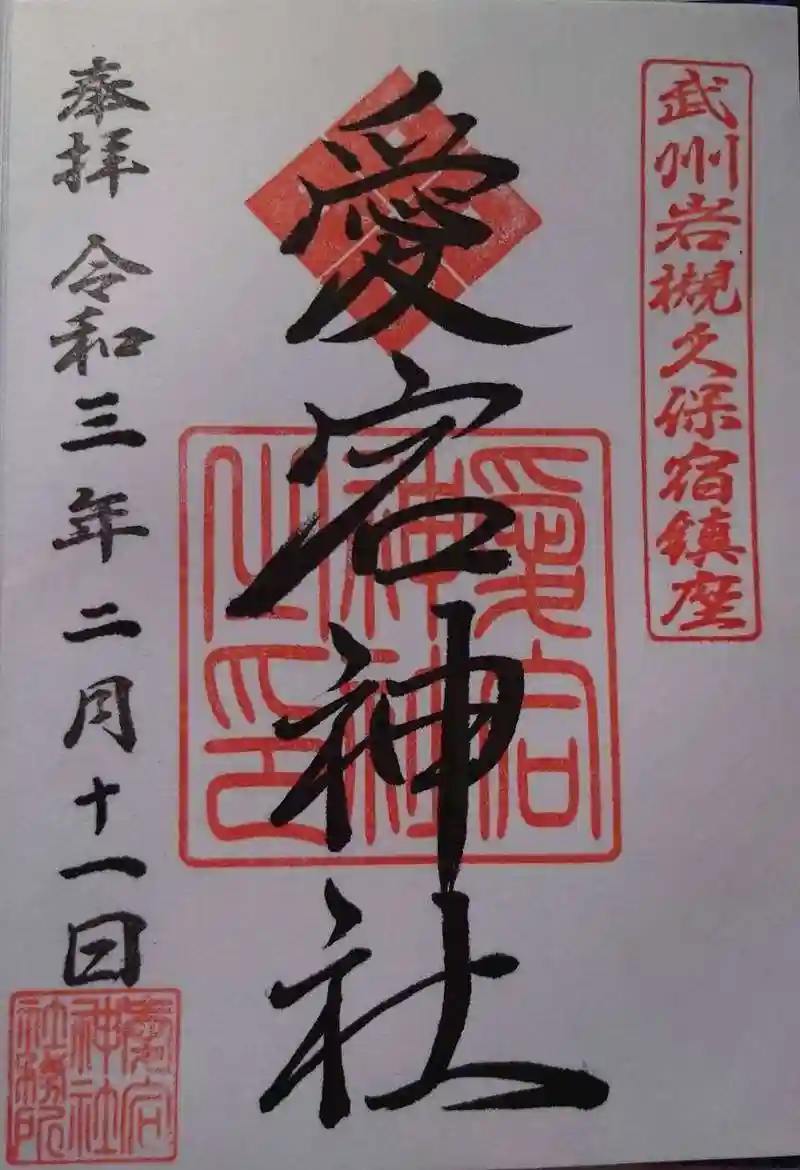 武州岩槻久保宿鎮座
愛宕神社
愛宕神社之印
奉拝 令和三年二月十一日
愛宕神社社務所